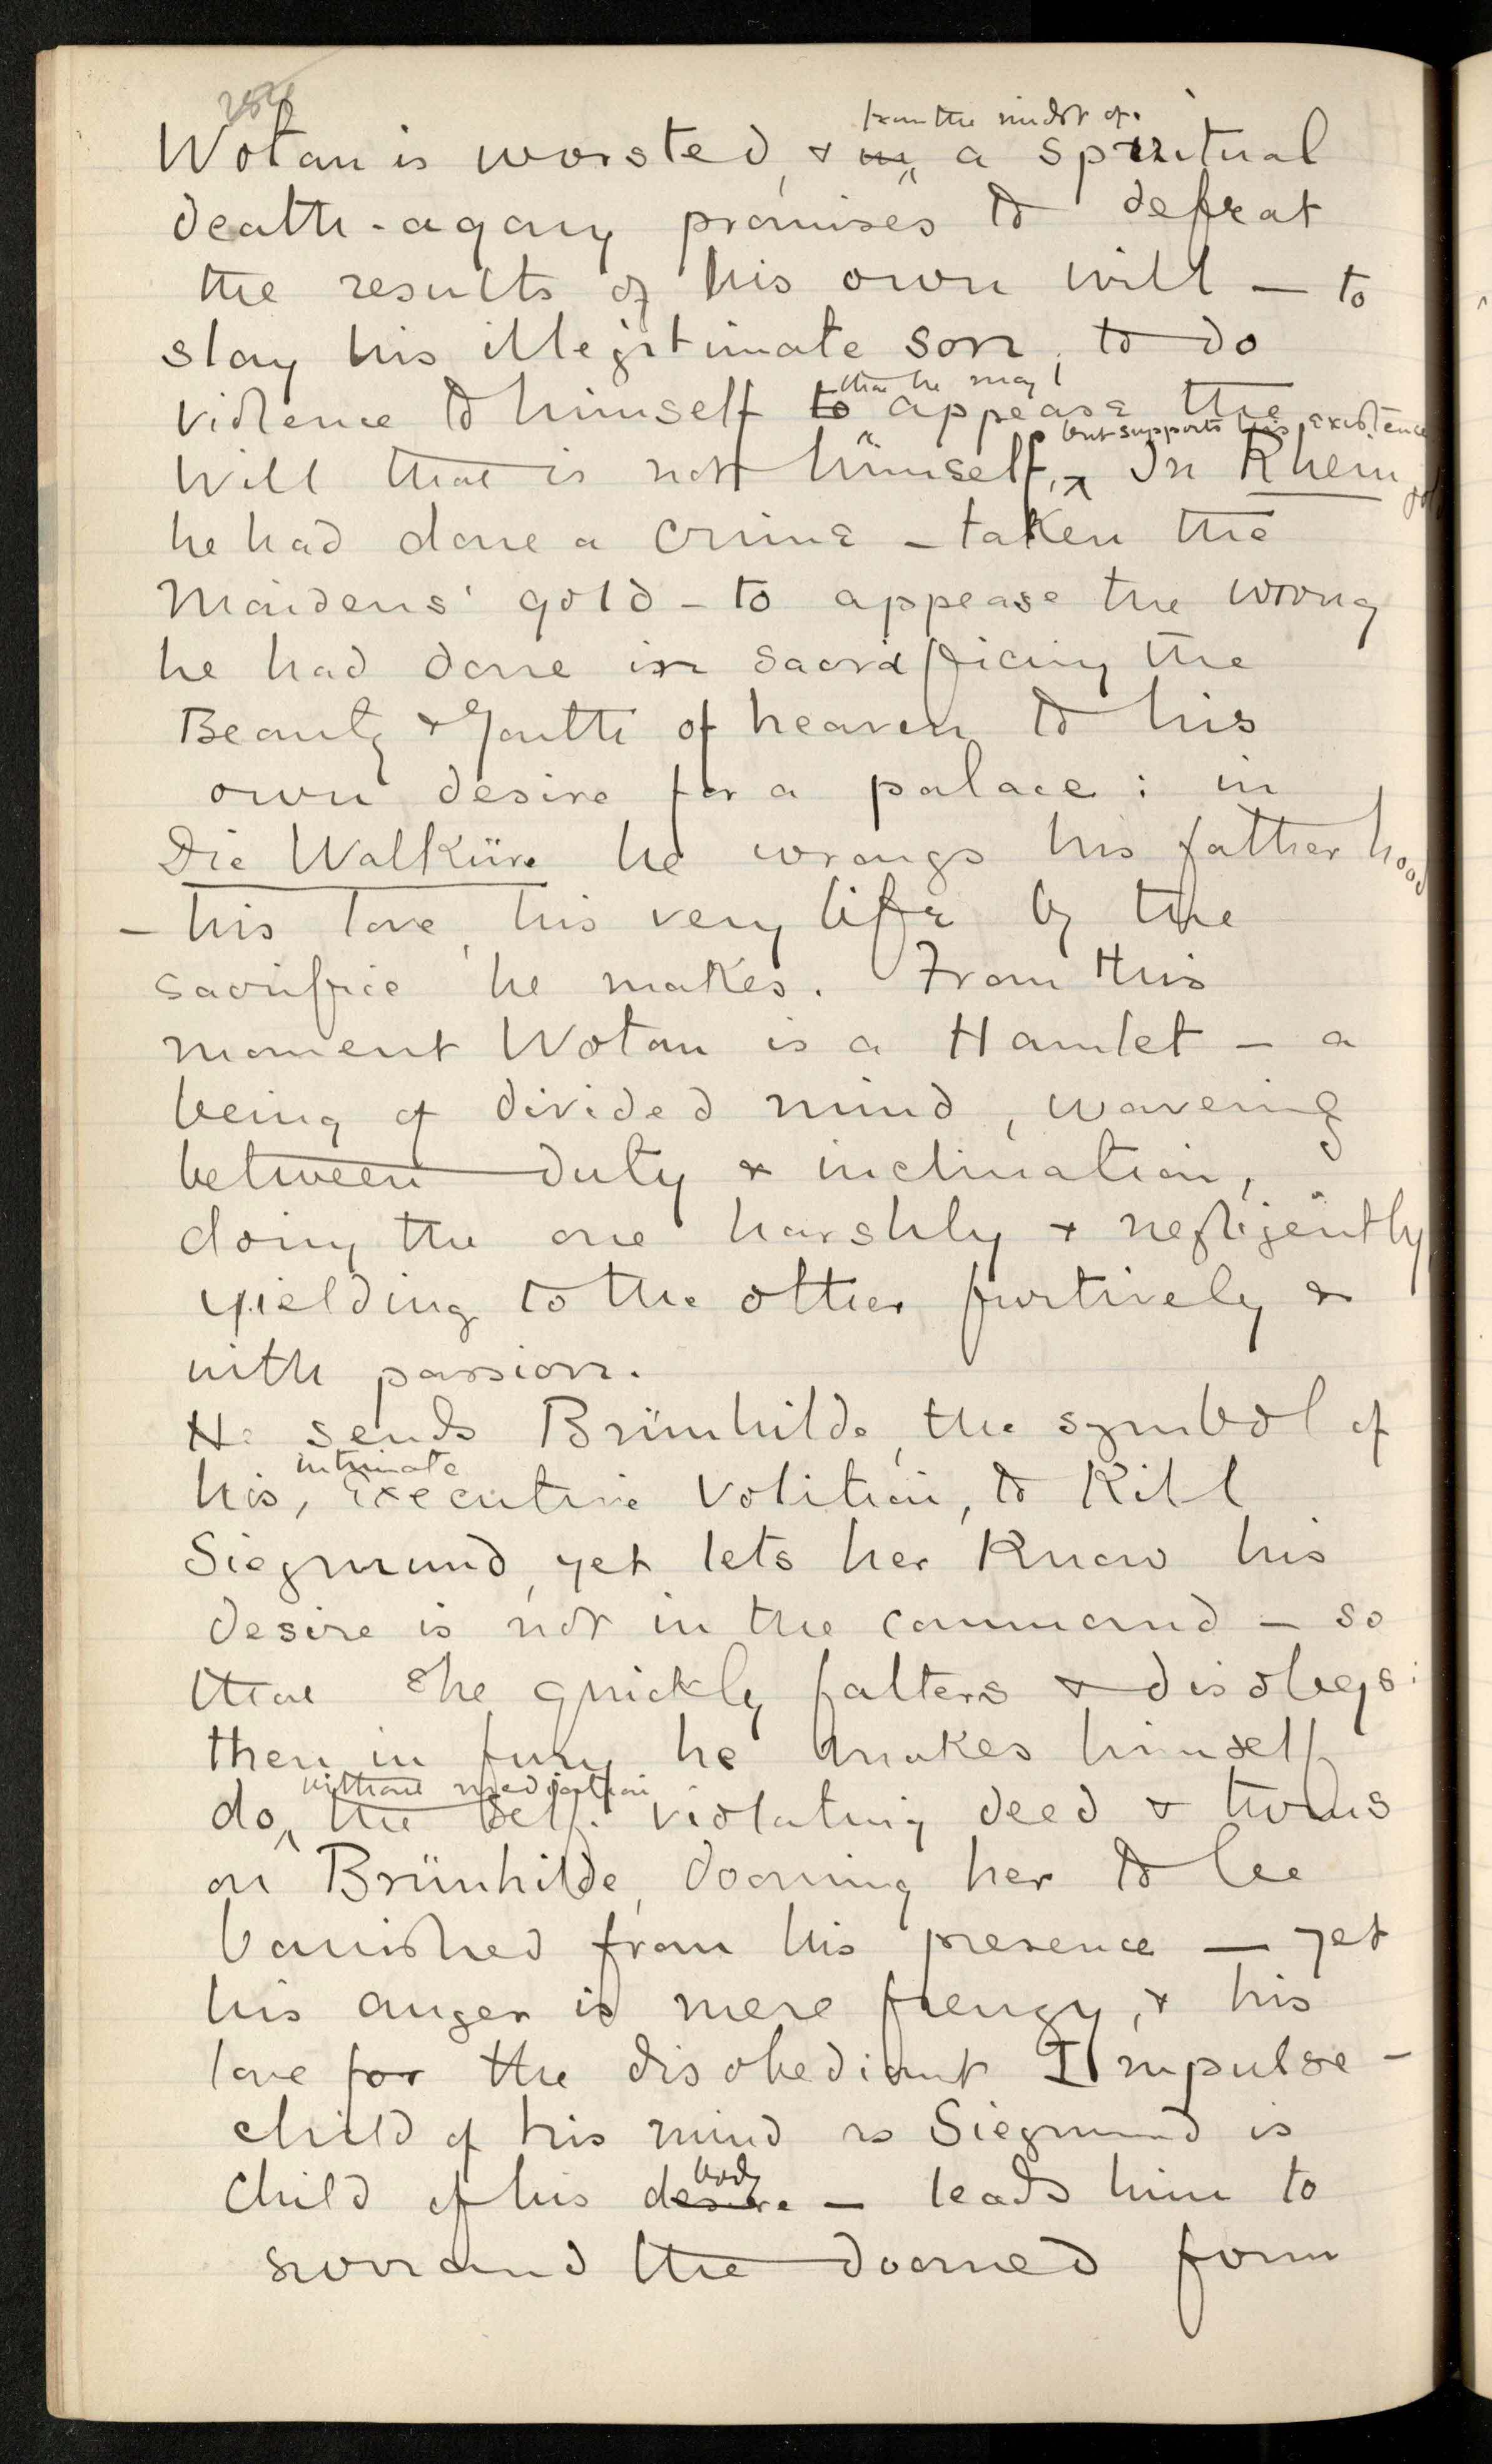 254
from the midst of
Wotan is worsted, & in a spiritual
death-agony promises to defeat
the results of his own will – to
slay his illegitimate son, to do
that he may
violence to himself to appease the
but supports his existence
Will that is not himself. In Rheingold
he had done a crime – taken the
Maidens' gold – to appease the wrong
he had done in sacrificing the
Beauty & Youth of heaven to his
own desire for a palace: in
Die Walküre he wrongs his fatherhood
– his love, his very life by the
sacrifice he makes. From this
moment Wotan is a Hamlet – a
being of divided mind, wavering
between duty & inclination,
doing the one harshly & negligently,
yielding to the other furtively &
with passion.
He sends Brünhilde, the symbol of
intimate
his, executive volition, to kill
Siegmund, yet lets her know his
desire is not in the command – so
that she quickly falters & disobeys:
then in fury he makes himself
without mediation
do the self-violating deed & turns
on Brünhilde, dooming her to be
banished from his presence – yet
his anger is mere frenzy, & his
love for the disobedient Impulse –
child of his mind as Siegmund is
body
child of his desire – leads him to
surround the doomed form